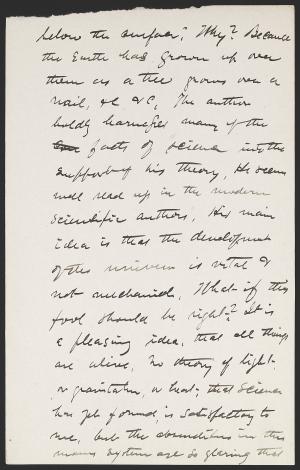 below the surface? Why? Because
the Earth has grown up over
them as a tree grows over a
nail, &c &c, The author
boldly harnesses many of the
facts of science into the
support of his theory, He seems
well read up in the modern
scientific authors, His main
idea is that the development
of this universe is vital &
not mechanical, What if this
fool should be right? It is
a pleasing idea, that all things
are alive, No theory of light
or gravitation, or heat, that science
has yet found, is satisfactory to
me, but the absurdities in this
mans system are so glaring that